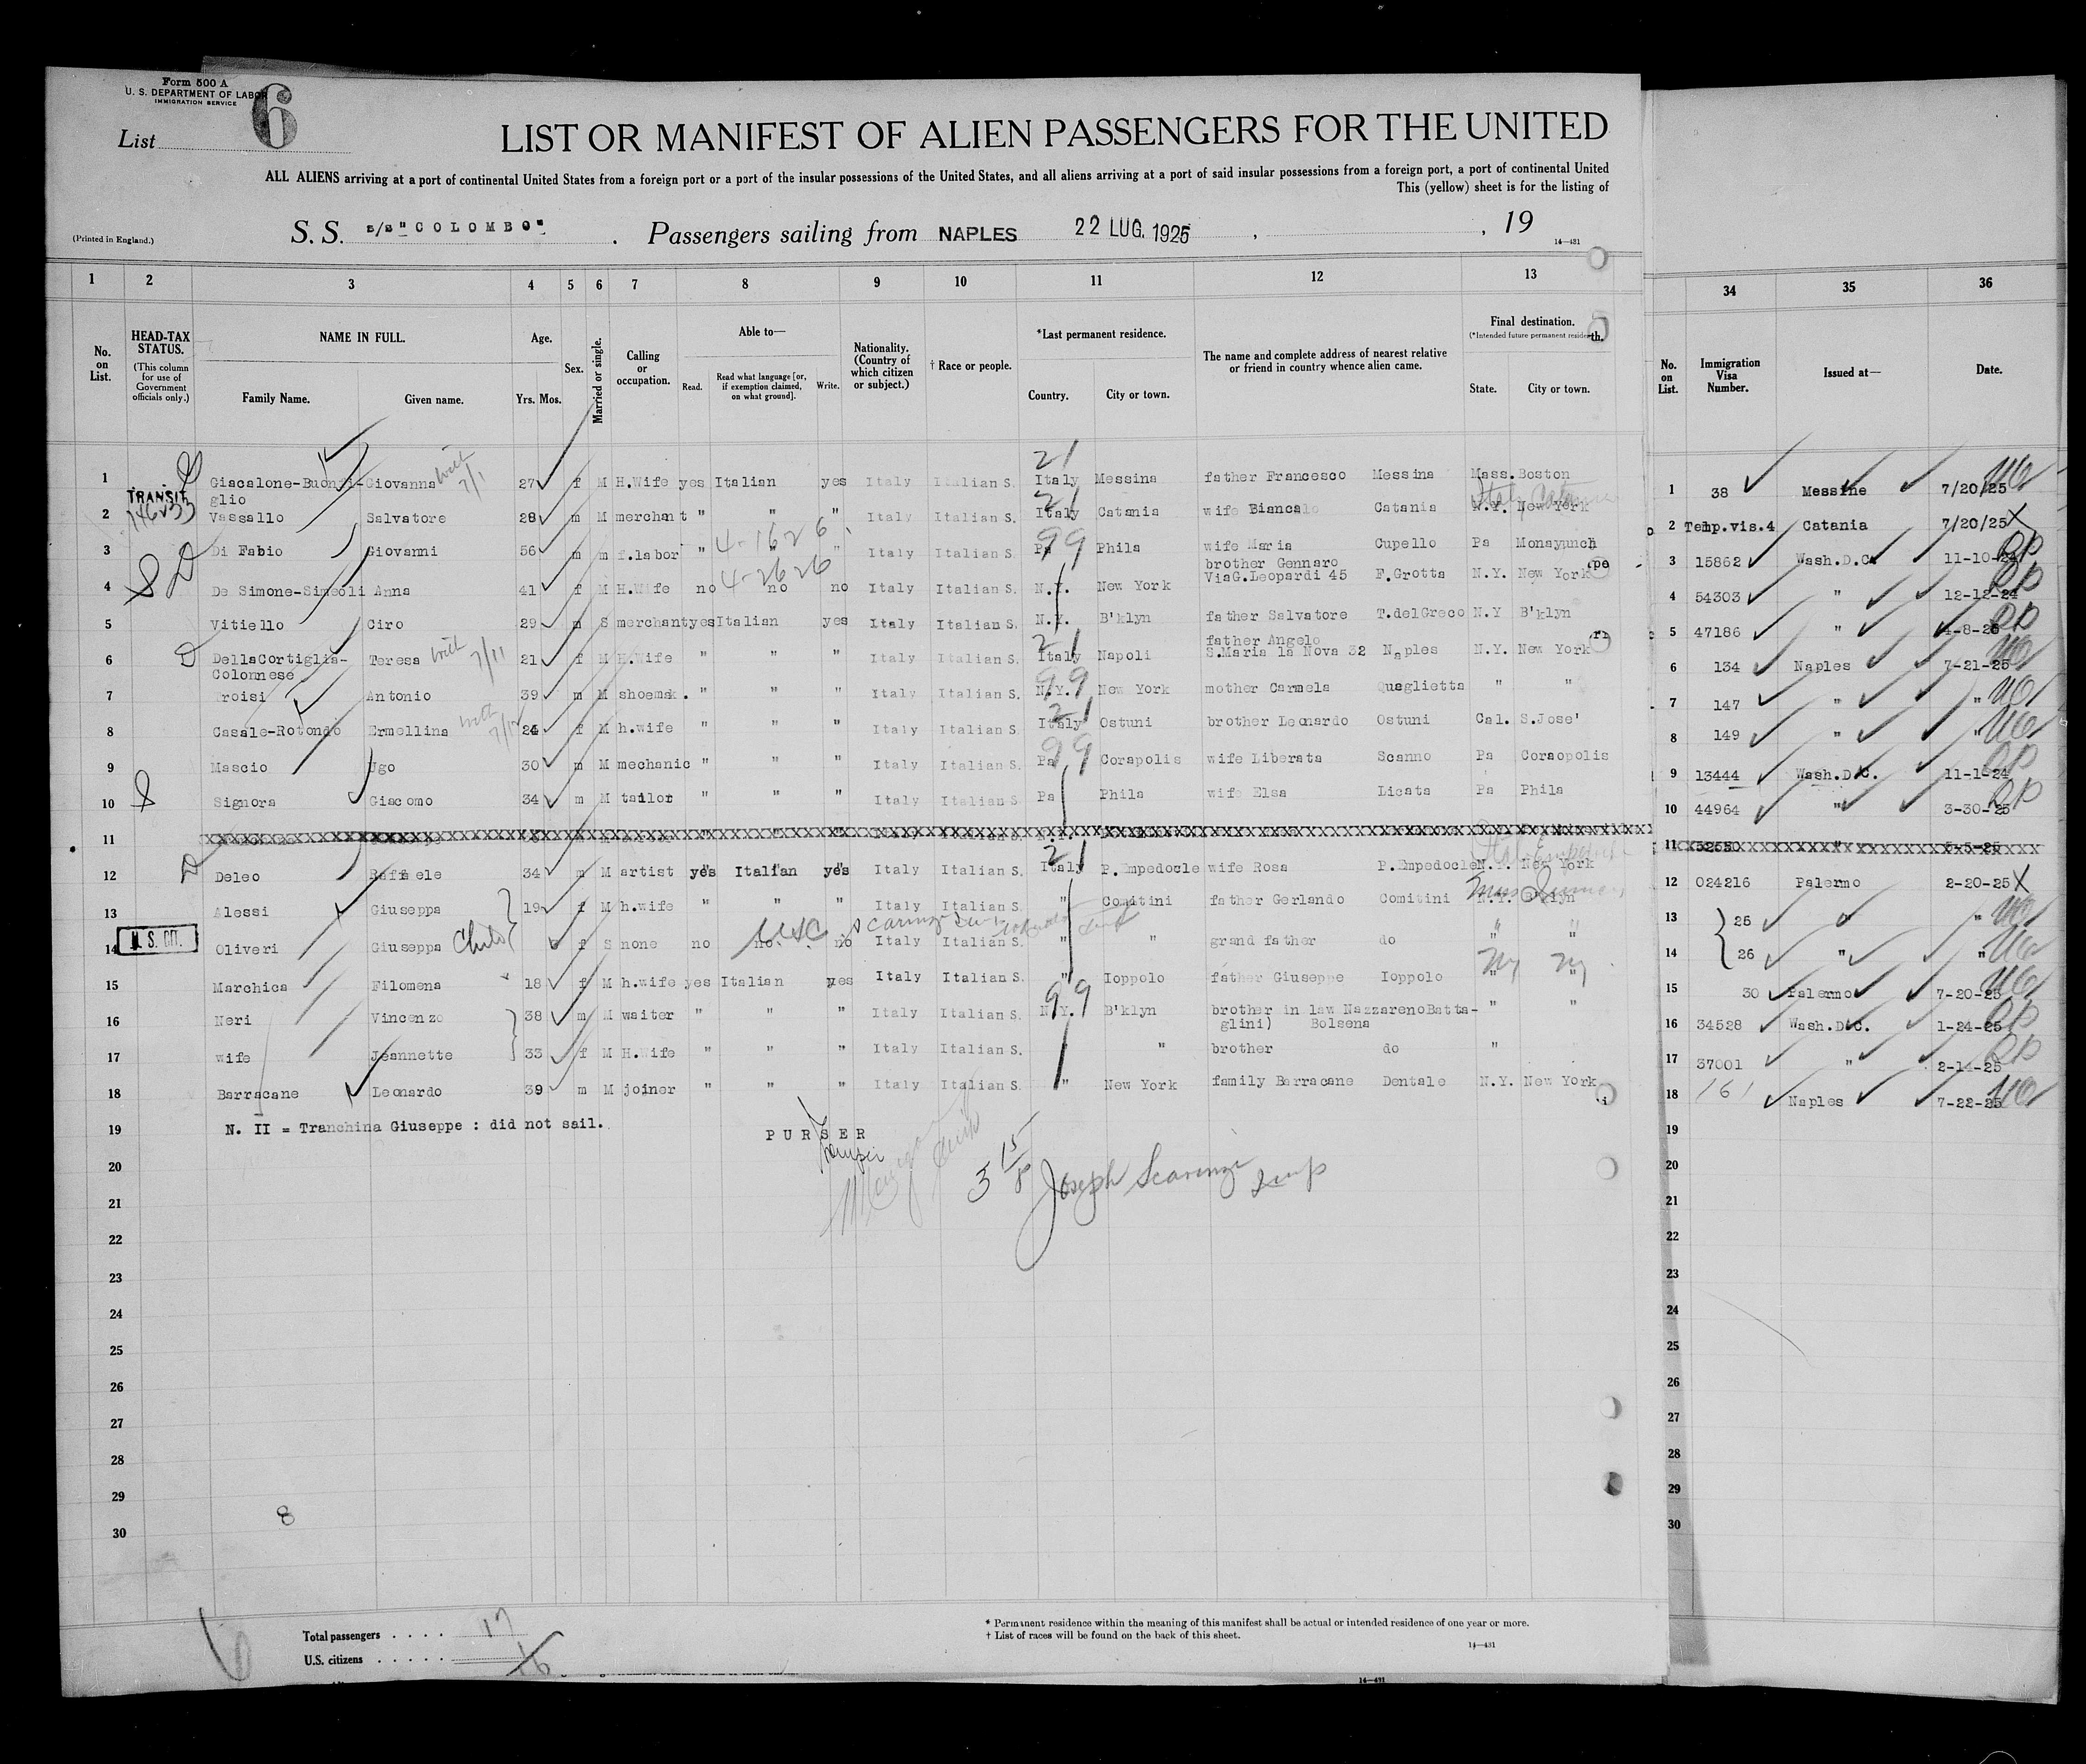 Form 500 A
U. S. DEPARTMENT OF LABOR
IMMIGRATION SERVICE
List 6
LIST OR MANIFEST OF ALIEN PASSENGERS FOR THE UNITED
ALL ALIENS arriving at a port of continental United States from a foreign port or a port of the insular possessions of the United States, and all aliens arriving at a port of said insular possessions from a foreign port, a port of continental United
This (yellow) sheet is for the listing of
(Printed in England.)
S. S. s/s "COLOMBO" . Passengers sailing from NAPLES 22 LUG. 1925 , , 19
14—431
1 2 3 4 5 6 7 8 9 10 11 12 13 34 35 36
No. on List.
HEAD-TAX STATUS.
(This column for use of Government officials only.)
NAME IN FULL.
Family Name. Given name.
Age.
Yrs. Mos.
Sex.
Married or single.
Calling or occupation.
Able to—
Read. Read what language [or, if exemption claimed, on what ground]. Write.
Nationality. (Country of which citizen or subject.)
† Race or people.
*Last permanent residence.
Country. City or town.
The name and complete address of nearest relative or friend in country whence alien came.
Final destination.
(*Intended future permanent residence)
State. City or town.
No. on List.
Immigration Visa Number.
Issued at—
Date.
1 Giacalone-Buonfi- Giovanna with 7/1 27 f M H.Wife yes Italian yes Italy Italian S. 21 Italy Messina father Francesco Messina Mass. Boston 1 38 Messine 7/20/25
glio
TRANSIT
2 Vassallo Salvatore 28 m M merchant " " " Italy Italian S. 21 Italy Catania wife Bianca Catania N.Y. New York 2 Temp.vis.4 Catania 7/20/25
3 Di Fabio Giovanni 56 m m f.labor " " " Italy Italian S. 99 Pa Phila wife Maria Cupello Pa Monayunch 3 15862 Wash.D.C. 11-10-24
4 De Simone-Simeoli Anna 41 f M H.Wife no no no Italy Italian S. N.Y. New York brother Gennaro
ViaG.Leopardi 45 F.Grotta N.Y. New York 4 54303 " 12-12-24
5 Vitiello Ciro 29 m S merchant yes Italian yes Italy Italian S. N.Y. B'klyn father Salvatore T.delGreco N.Y B'klyn 5 47186 " 4-8-25
6 DellaCortiglia- Teresa with 7/11 21 f M H.Wife " " " Italy Italian S. 21 Italy Napoli father Angelo
S.Maria la Nova 32 Naples N.Y. New York 6 134 Naples 7-21-25
Colonnese
7 Troisi Antonio 39 m M shoemak. " " " Italy Italian S. 99 N.Y. New York mother Carmela Quaglietta " " 7 147 " "
8 Casale-Rotondo Ermellina with 7/12 24 f M h.wife " " " Italy Italian S. 21 Italy Ostuni brother Leonardo Ostuni Cal. S.Jose' 8 149 " "
9 Mascio Ugo 30 m M mechanic " " " Italy Italian S. 99 Pa Corapolis wife Liberata Scanno Pa Coraopolis 9 13444 Wash.D.C. 11-1-24
10 Signora Giacomo 34 m M tailor " " " Italy Italian S Pa Phila wife Elsa Licata Pa Phila 10 44964 " 3-30-25
11 11
12 Deleo Raffaele 34 m M artist yes Italian yes Italy Italian S. 21 Italy P.Empedocle wife Rosa P.Empedocle N.Y. New York 12 024216 Palermo 2-20-25
13 Alessi Giuseppa 19 f M h.wife " " " Italy Italian S. " Comitini father Gerlando Comitini N.Y. B'klyn 13 25 " "
U. S. CIT.
14 Oliveri Giuseppa Child f S none no no no USC Italy Italian S. " " grand father do " " 14 26 " "
15 Marchica Filomena 18 f M h.wife yes Italian yes Italy Italian S. " Ioppolo father Giuseppe Ioppolo " " NY NY 15 30 Palermo 7-20-25
16 Neri Vincenzo 38 m M waiter " " " Italy Italian S. 99 N.Y. B'klyn brother in law NazzarenoBatta-
glini) Bolsena " " 16 34528 Wash.D.C. 1-24-25
17 wife Jeannette 33 f M H.Wife " " " Italy Italian S. " brother do " 17 37001 " 2-14-25
18 Barracane Leonardo 39 m M joiner " " " Italy Italian S. " New York family Barracane Dentale N.Y. New York 18 161 Naples 7-22-25
19 N. II = Tranchina Giuseppe : did not sail. PURSER 19
20 3 15/8 Joseph Scaringi Insp 20
21 21
22 22
23 23
24 24
25 25
26 26
27 27
28 28
29 29
30 30
8
6
Total passengers . . . . 17
U.S. citizens . . . . .
* Permanent residence within the meaning of this manifest shall be actual or intended residence of one year or more.
† List of races will be found on the back of this sheet.
14—431
14—431